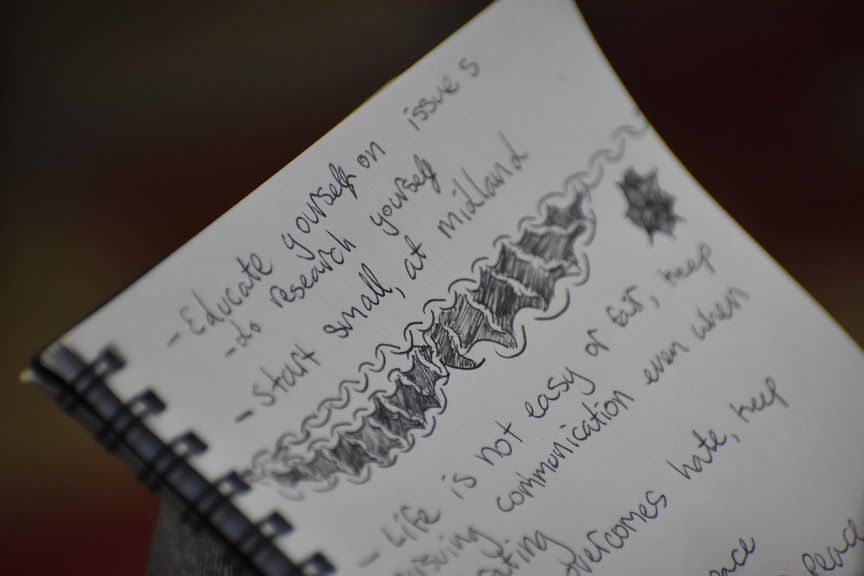 - Educate yourself on issues
- do research yourself
- Start small, at midland
- Life is not easy or fair, keep
communication even when
overcomes hate, keep